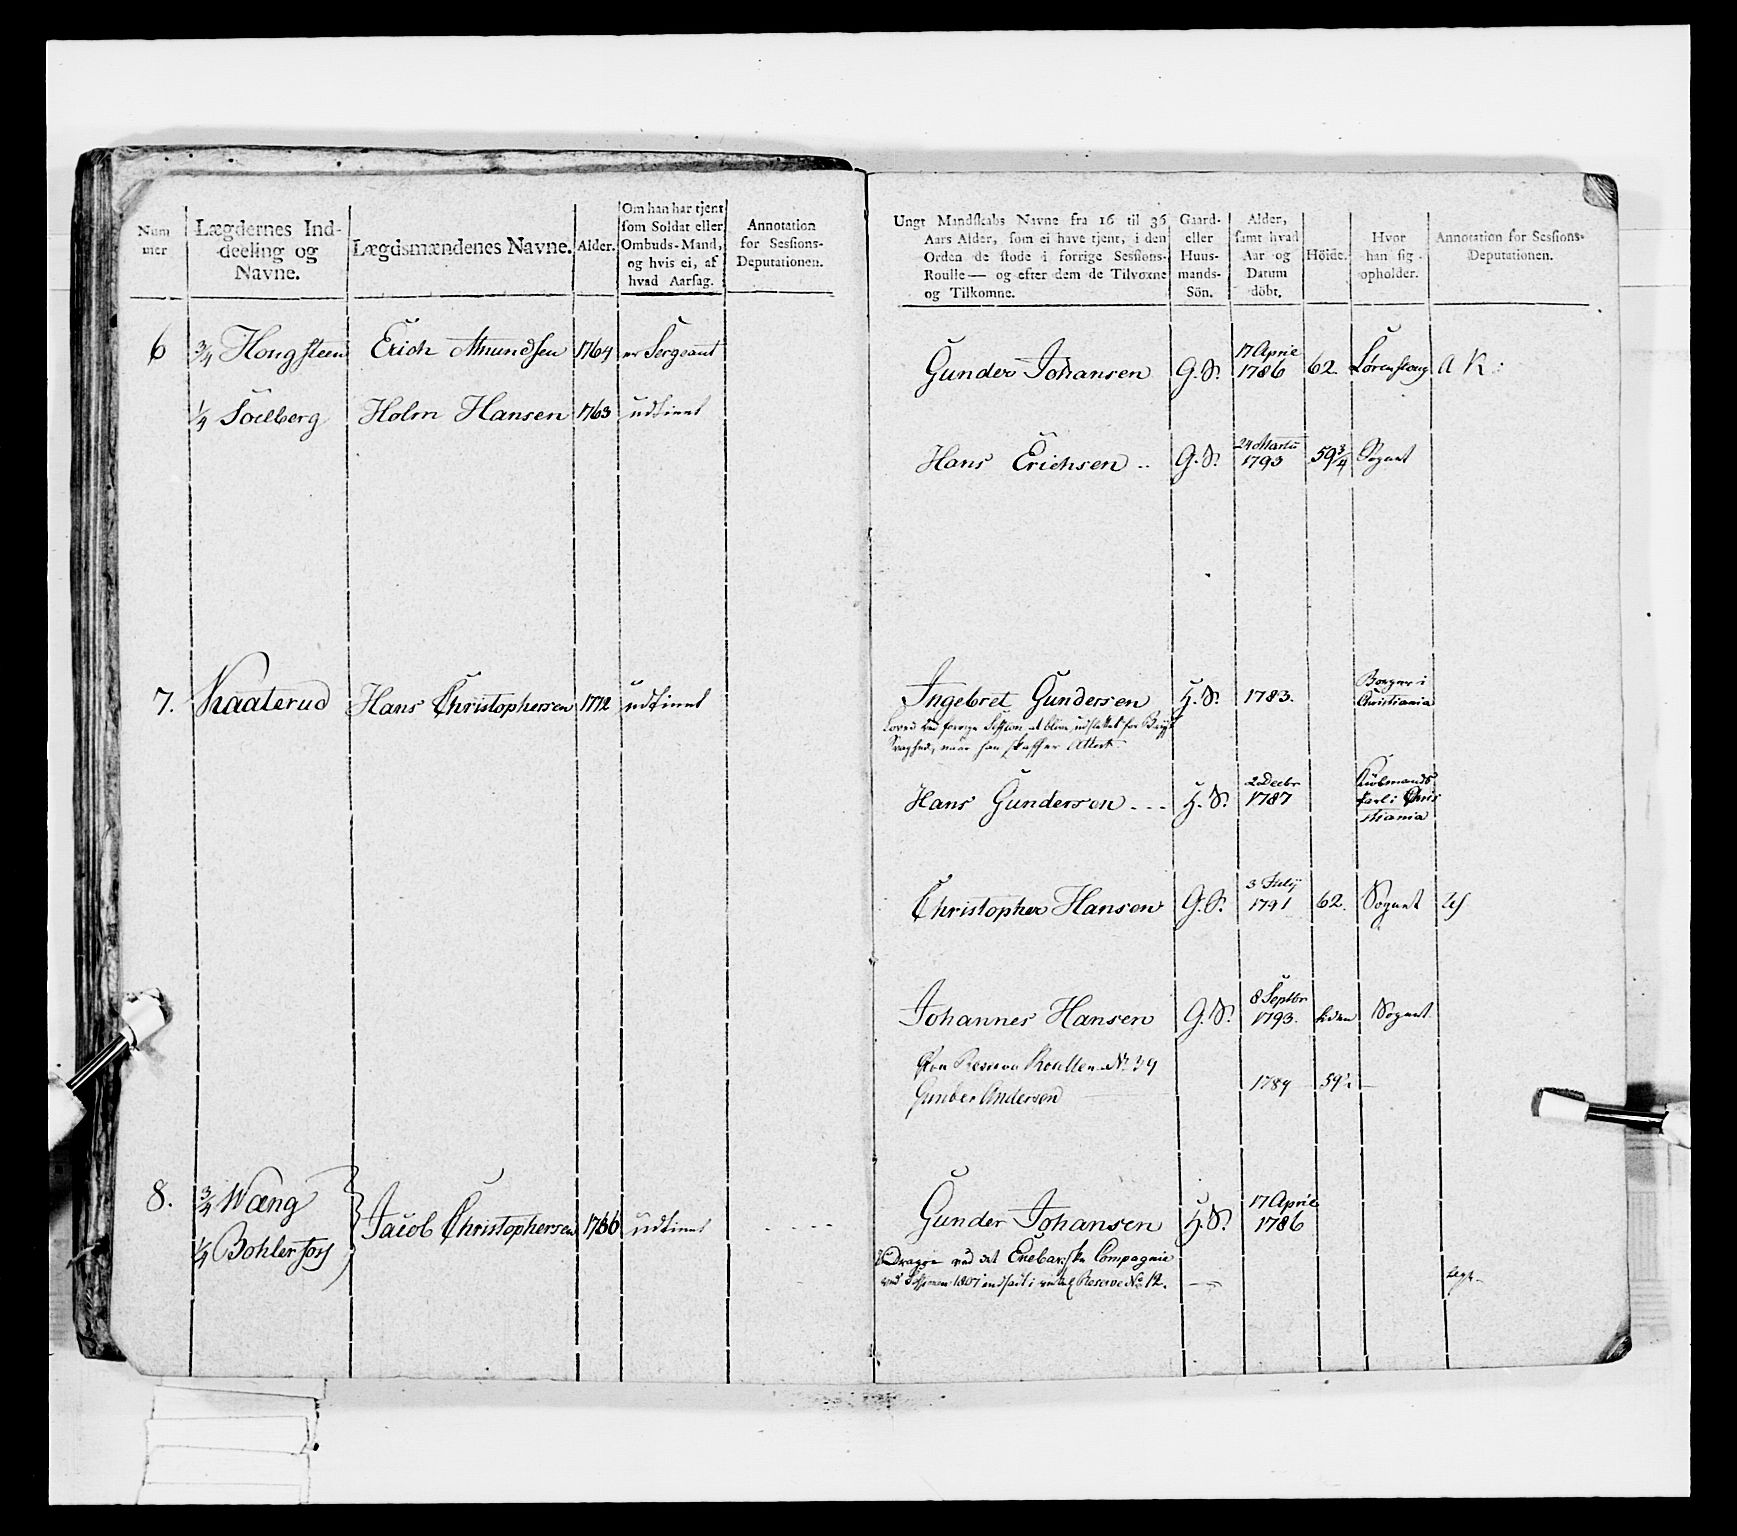 Num
mer
Lægdernes Ind-
deeling og
Navne.
Lægdsmændenes Navne.
Alder.
Om han har tjent
som Soldat eller
Ombuds-Mand,
og hvis ei, af
hvad Aarsag.
Annotation
for Sessions-
Deputationen.
6 3/4 Hougsteen Erich Amundsen 1764 er Sergeant
1/4 Soelberg Holm Hansen 1763 udtient
7. Kaaterud Hans Christophersen 1772 udtient
8. 3/4 Wæng
1/4 Bohlerfoss
Jacob Christophersen 1766 udtient
Ungt Mandskabs Navne fra 16 til 36
Aars Alder, som ei have tjent, i den
Orden de stode i forrige Sessions-
Roulle — og efter dem de Tilvoxne
og Tilkomne.
Gaard-
eller
Huus-
mands-
Sön.
Alder,
samt hvad
Aar og
Datum
döbt.
Höide.
Hvor
han sig
opholder.
Annotation for Sessions-
Deputationen.
17 April
Gunder Johansen G. S. 1786 62. Lørenskoug A K:
24 Martii
Hans Erichsen .. G. S. 1793 59 3/4 Sognet
Borger i
Ingebret Gundersen H. S. 1783. Christiania
Loved ved forrige Session at blive udslettet for Bryst
Svaghed, naar han skaffer Attest
2 Decbr
Hans Gundersen H. S. 1787
Kiøbmands
karl i Chris
tiania
3 July
Christopher Hansen G. S. 1791 62. Sognet
8 Septbr
Johannes Hansen G. S. 1793. liden Sognet
Fra Reserve Roullen No 39
Gunder Andersen 1789 59 1/2
17 April
Gunder Johansen H. S. 1786
ved det Enebakske Compagnie
ved Sessionen 1807 indsadt i Reserve No 12.